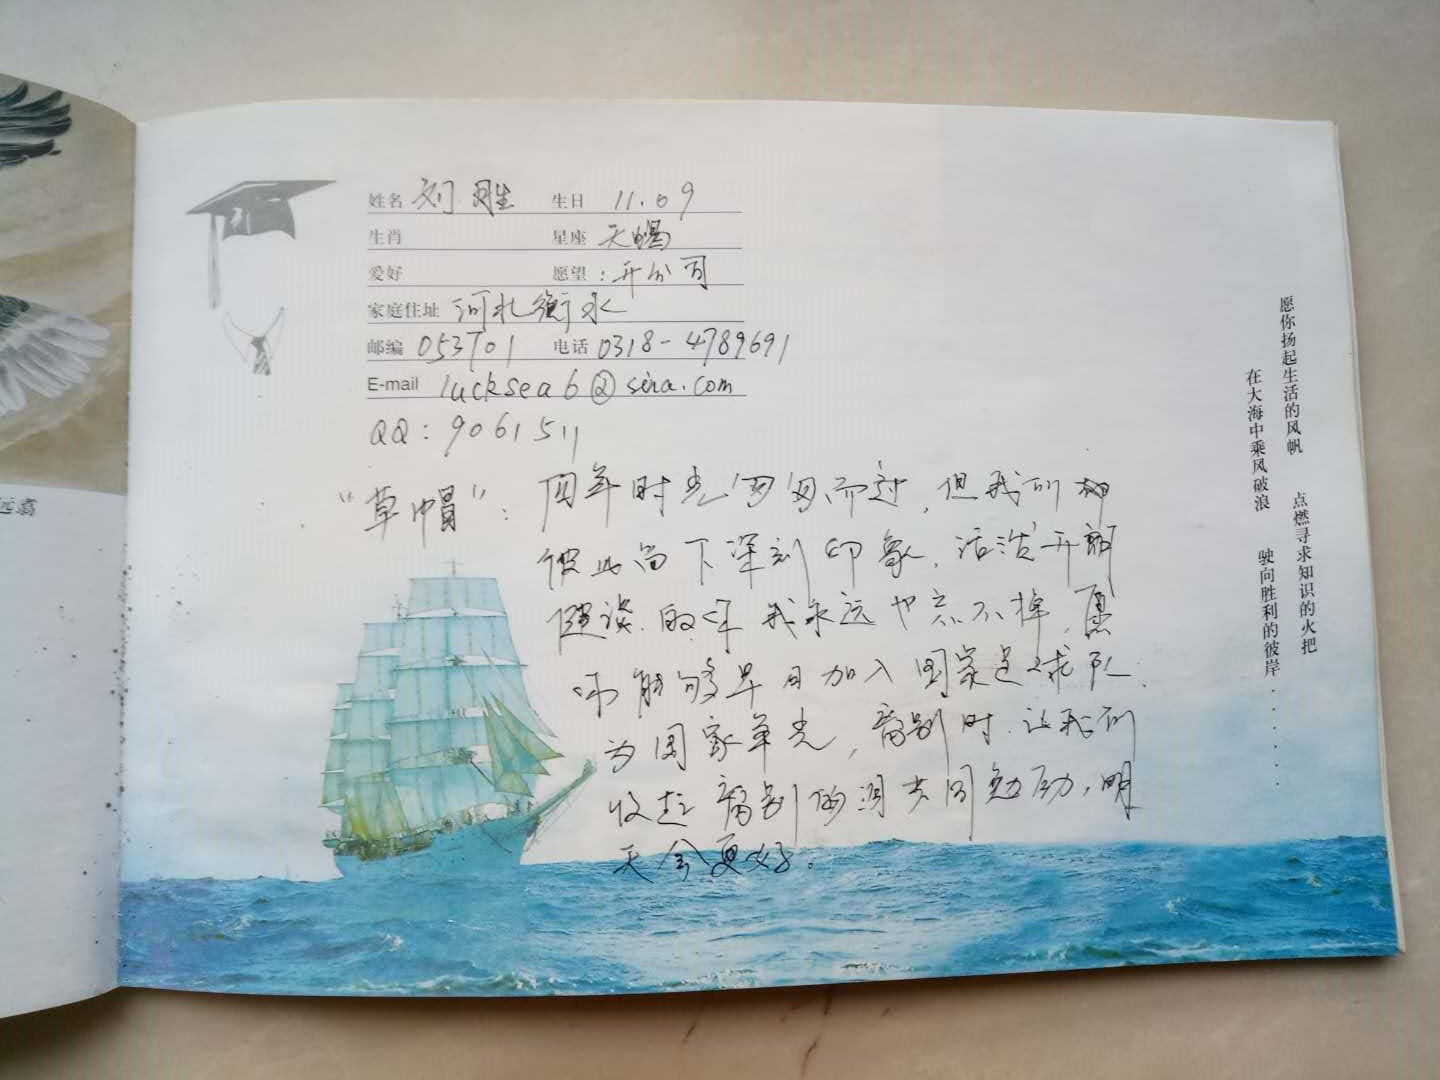 远翥
姓名 刘胜 生日 11.09
生肖 星座 天蝎
爱好 愿望：开公司
家庭住址 河北衡水
邮编 053701 电话 0318-4789691
E-mail lucksea6@sina.com
QQ：9061511
“草帽”：四年时光匆匆而过，但我们却
彼此留下深刻印象，活泼开朗
健谈的你我永远也忘不掉，愿
你能够早日加入国家足球队
为国家争光，离别时，让我们
收起离别的泪共同勉励，明
天会更好。
愿你扬起生活的风帆
在大海中乘风破浪
点燃寻求知识的火把
驶向胜利的彼岸......